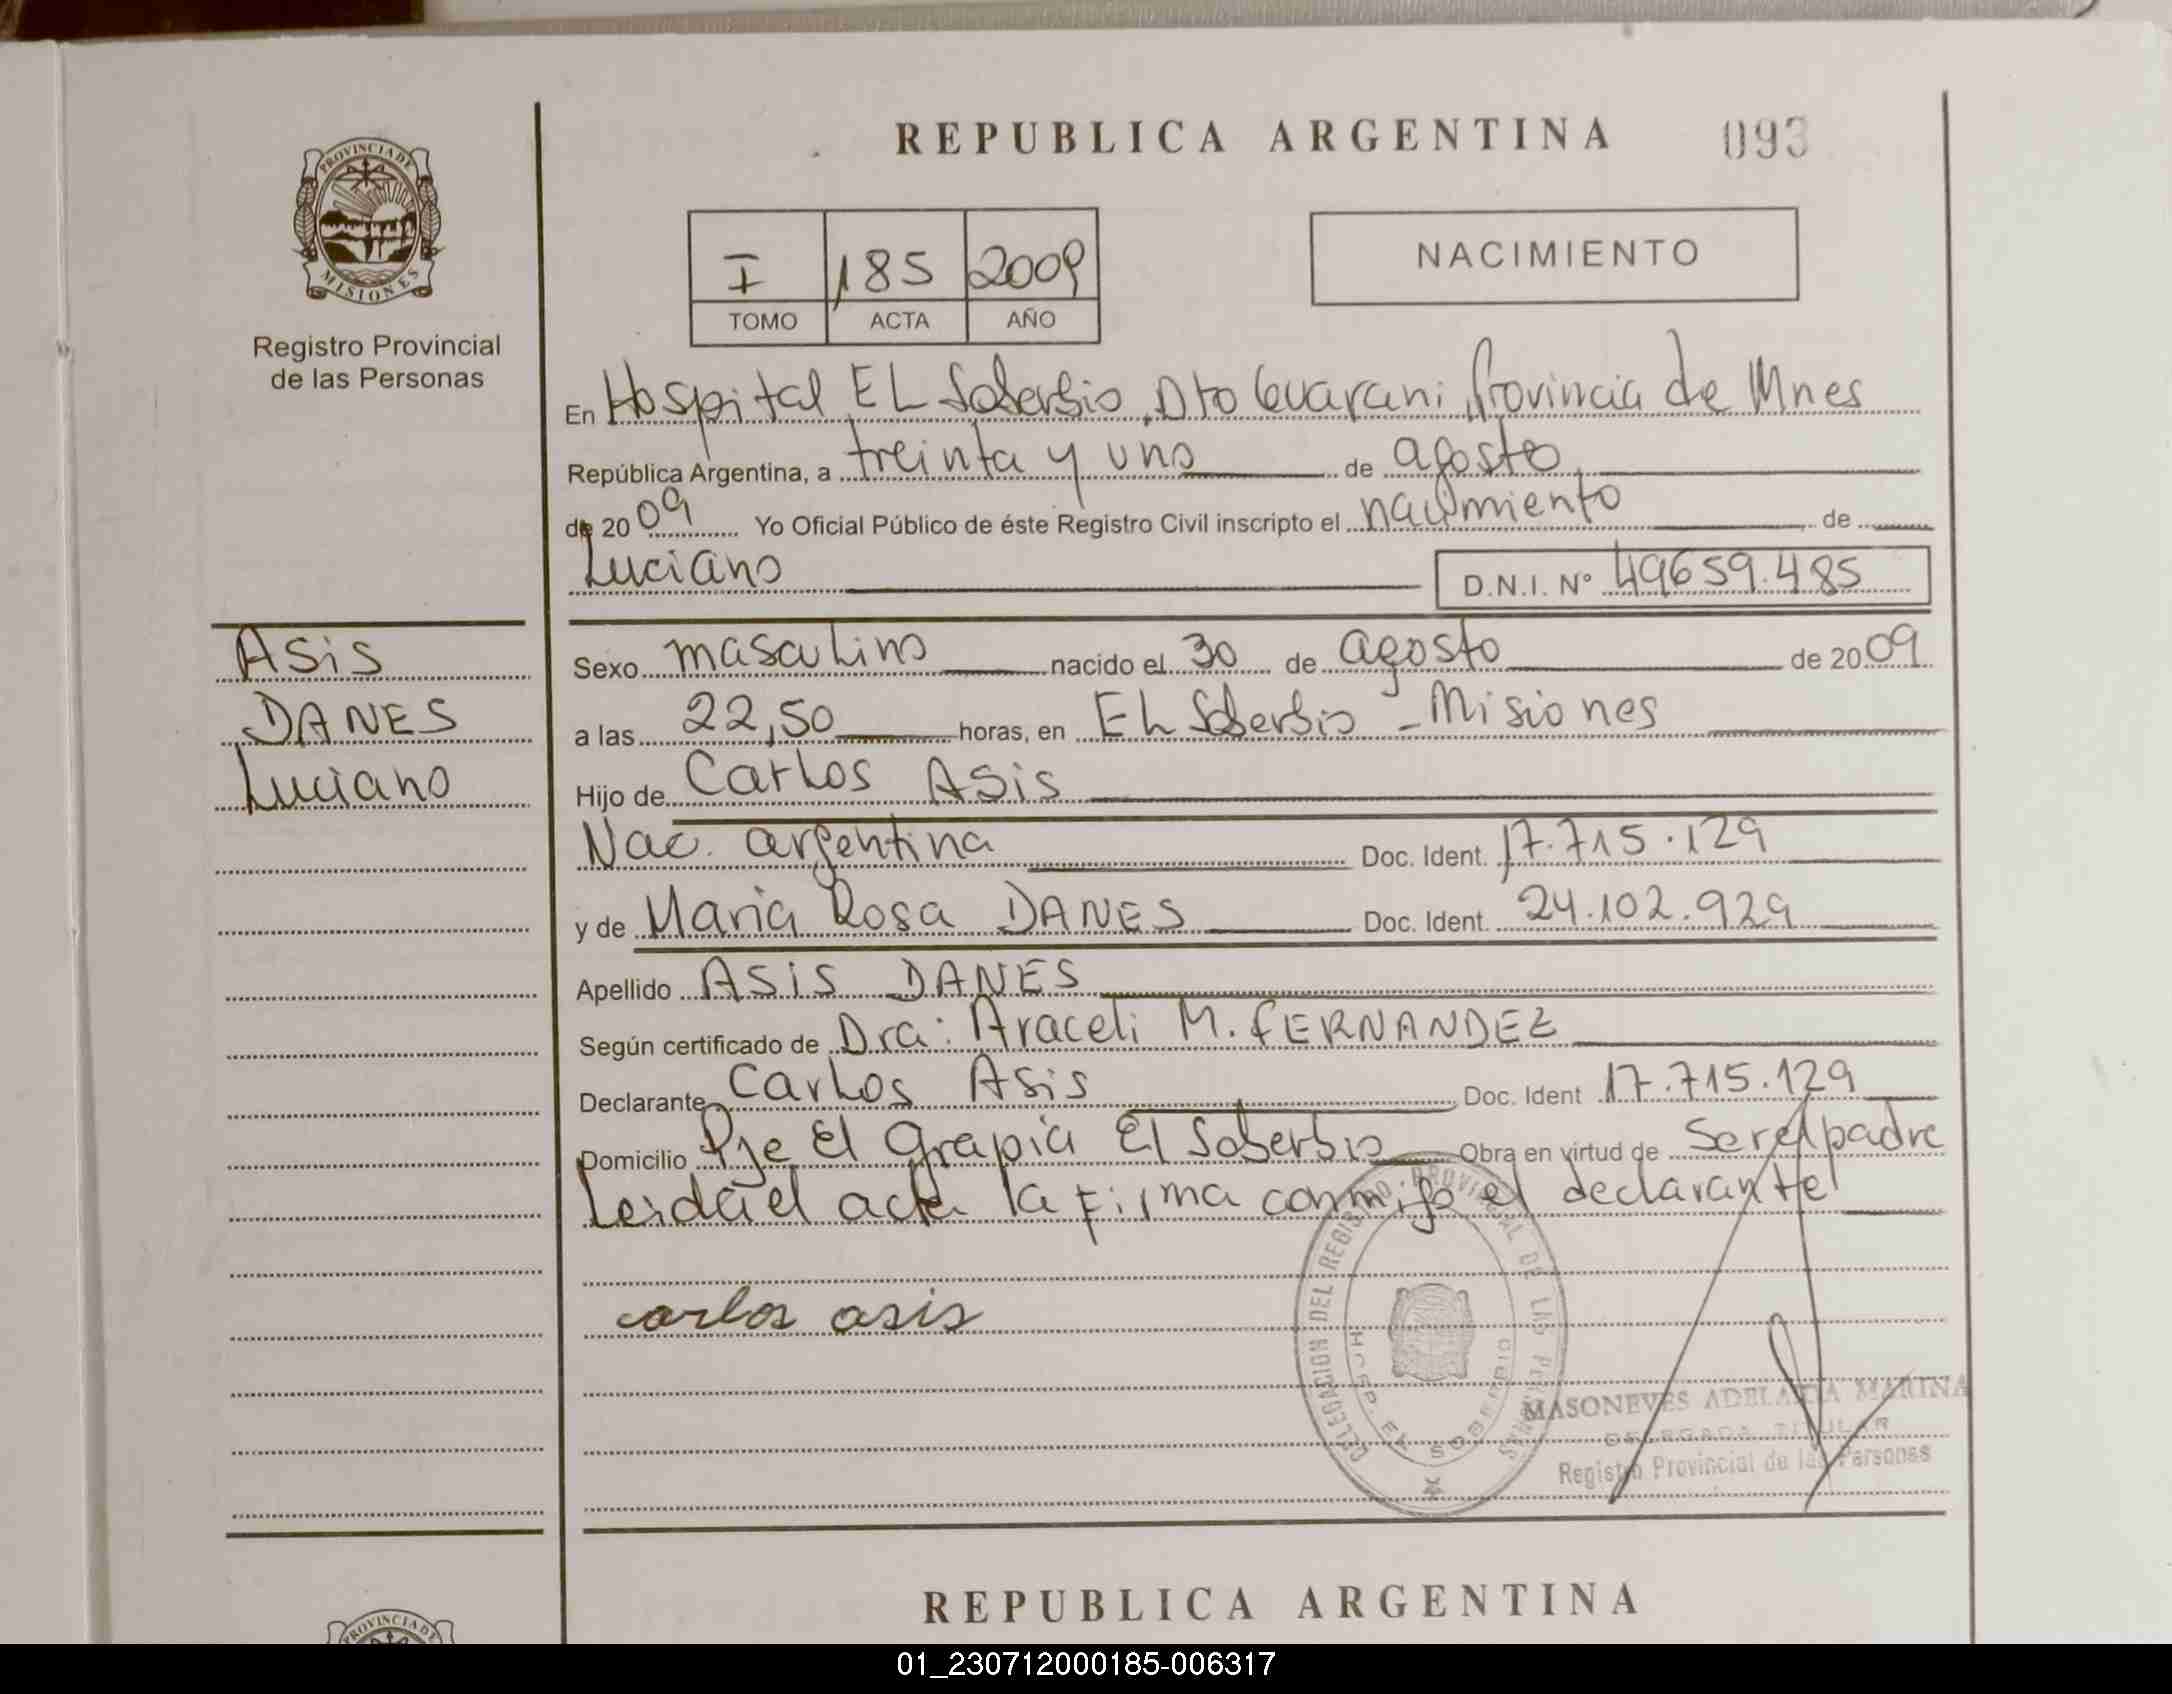 REPUBLICA ARGENTINA 093
PROVINCIA DE
MISIONES
Registro Provincial
de las Personas
I 185 2009
TOMO ACTA AÑO
NACIMIENTO
En Hospital EL Soberbio, Dto Guarani, Provincia de Mnes
República Argentina, a treinta y uno de agosto,
de 2009 Yo Oficial Público de éste Registro Civil inscripto el nacimiento de
Luciano D.N.I. N° 49659.485
Asis
DANES
Luciano
Sexo masculino nacido el 30 de agosto de 2009
a las 22,50 horas, en EL Soberbio - Misiones
Hijo de Carlos Asis
Nac. argentina Doc. Ident. 17.715.129
y de Maria Rosa DANES Doc. Ident. 24.102.929
Apellido ASIS DANES
Según certificado de Dra: Araceli M. FERNANDEZ
Declarante Carlos Asis Doc. Ident 17.715.129
Domicilio Pje El Grapia El Soberbio Obra en virtud de Ser el padre
Leida el acta la firma conmigo el declarante
carlos asis
DELEGACION DEL REGISTRO PROVINCIAL DE LAS PERSONAS
HOSP EL SOBERBIO
MASONEVES ADELAIDA MARINA
DELEGADA TITULAR
Registro Provincial de las Personas
REPUBLICA ARGENTINA
PROVINCIA DE
01_230712000185-006317